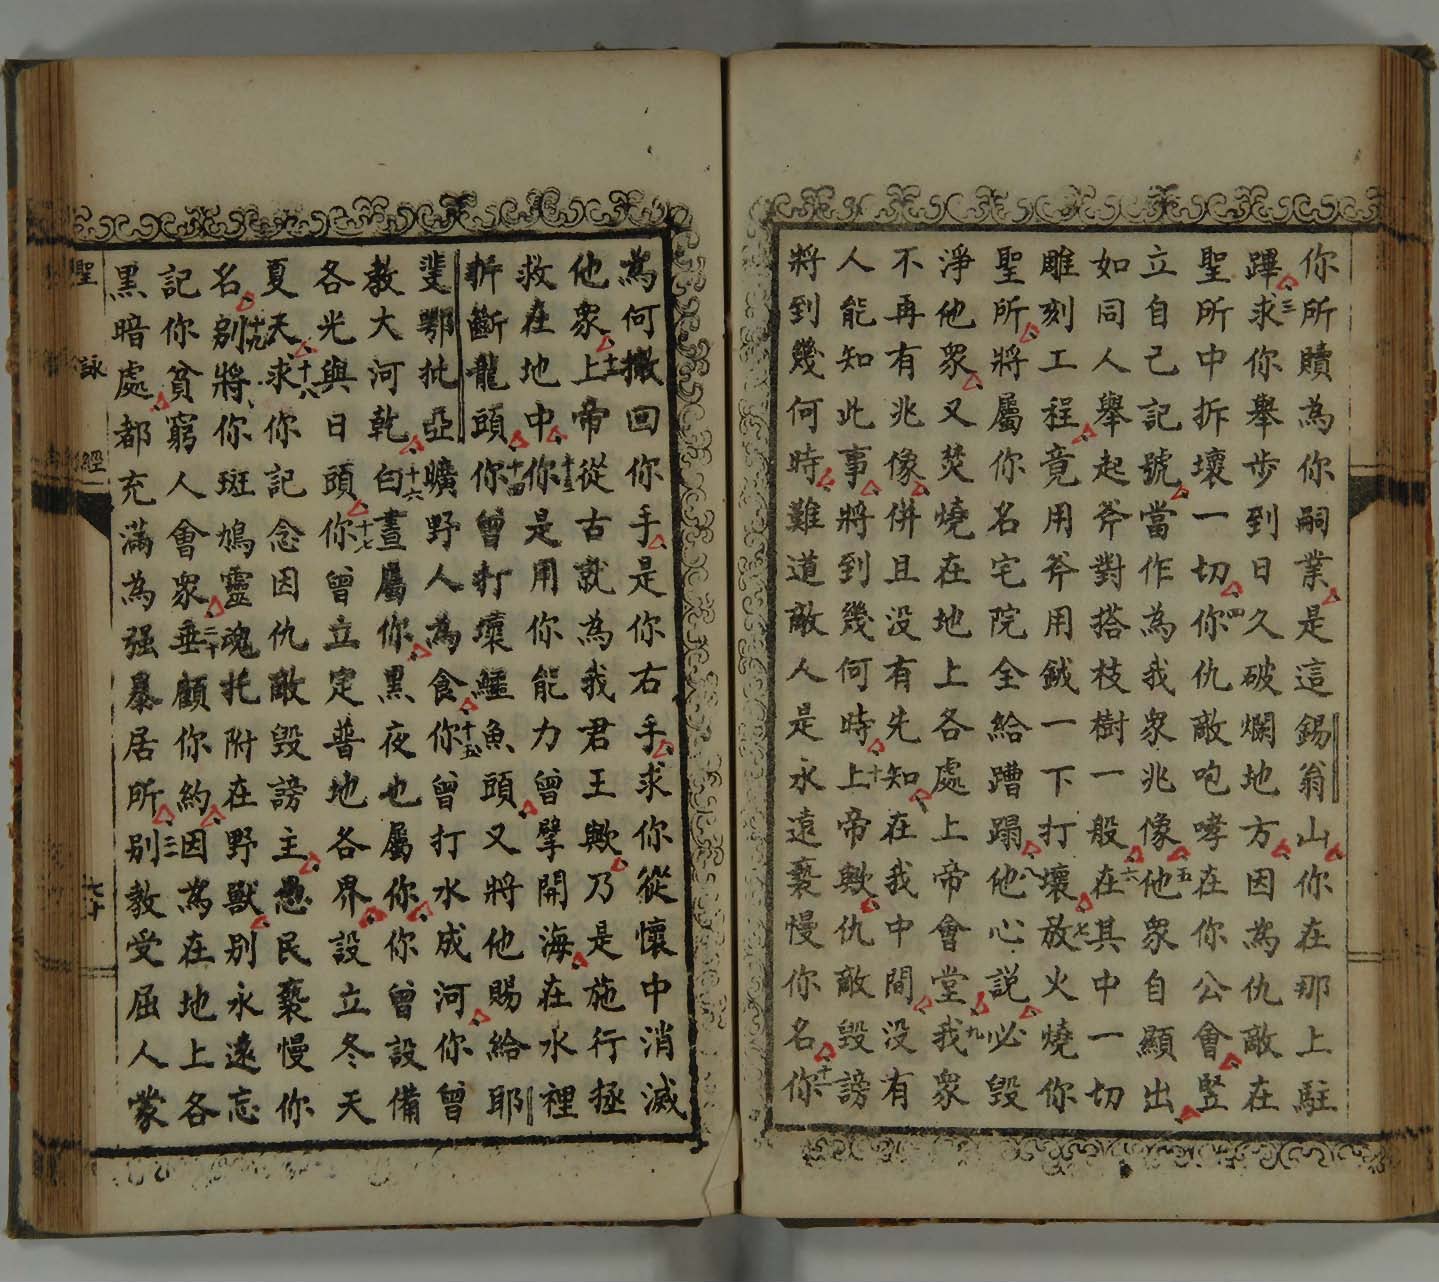 你所贖為你嗣業是這錫翁山你在那上駐
蹕三求你舉步到日久破爛地方因為仇敵在
聖所中拆壞一切四你仇敵咆哮在你公會竪
立自己記號當作為我衆兆像五他衆自顯出
如同人舉起斧對搭枝樹一般六在其中一切
雕刻工程竟用斧用鉞一下打壞七放火燒你
聖所將屬你名宅院全給蹧蹋八他心説必毀
淨他衆又焚燒在地上各處上帝會堂九我衆
不再有兆像併且没有先知在我中間没有
人能知此事將到幾何時十上帝歟仇敵毀謗
將到幾何時難道敵人是永遠褻慢你名十一你
為何撤回你手是你右手求你從懷中消滅
他衆十二上帝從古就為我君王歟乃是施行拯
救在地中十三你是用你能力曾擘開海在水裡
折斷龍頭十四你曾打壞鱷魚頭又將他賜給耶
斐鄂批亞曠野人為食十五你曾打水成河你曾
教大河乾十六白晝屬你黑夜也屬你你曾設備
各光與日頭十七你曾立定普地各界設立冬天
夏天十八求你記念因仇敵毀謗主愚民褻慢你
名十九別將你斑鳩靈魂托附在野獸別永遠忘
記你貧窮人會衆二十垂顧你約因為在地上各
黑暗處都充滿為强暴居所別教受屈人蒙
聖詠經